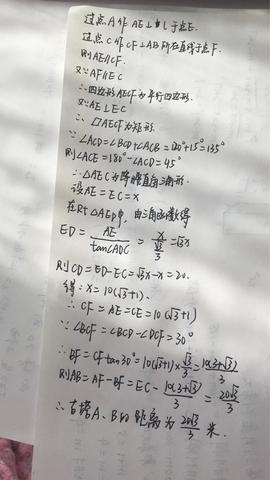 过点A作AE⊥l于点E.
过点C作CF⊥AB所在直线于点F.
则AE∥CF.
又∵AF∥EC
∴四边形AECF为平行四边形.
又∵AE⊥EC
∴▱AECF为矩形.
∵∠ACD=∠BCD+∠ACB=120°+15°=135°
则∠ACE=180°-∠ACD=45°
∴△AEC为等腰直角三角形.
设AE=EC=x
在Rt△AED中,由三角函数得
ED=AE/tan∠ADC=x/(√3/3)=√3x
则CD=ED-EC=√3x-x=20.
得:x=10(√3+1).
∴CF=AE=CE=10(√3+1)
∵∠BCF=∠BCD-∠DCF=30°
∴BF=CFtan30°=10(√3+1)×√3/3=10(3+√3)/3
则AB=AF-BF=EC-10(3+√3)/3=20√3/3
∴古塔A、B的距离为20√3/3米.